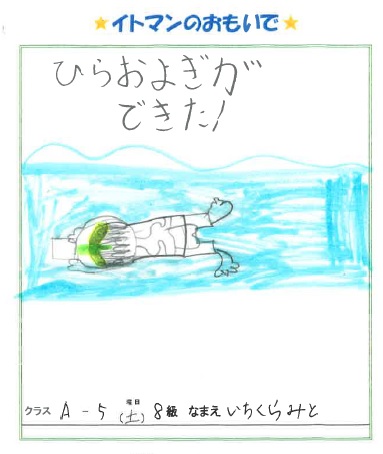 ★イトマンのおもいで★
ひらおよぎが
できた!
クラス A-5 曜日(土) 8級 なまえ いちくらみと